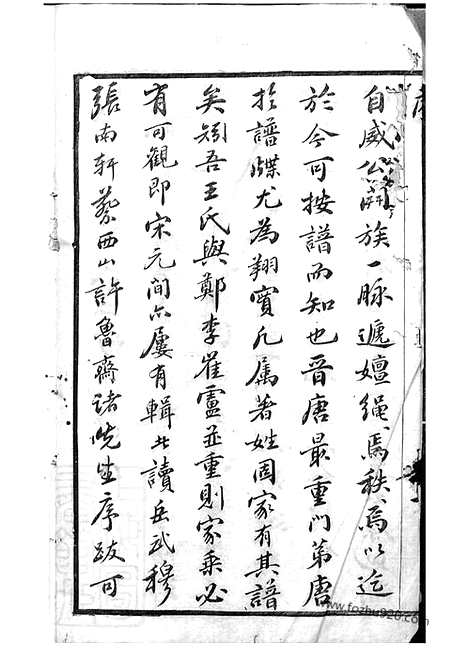 自威公開族一脉遞嬗繩、焉秩、焉以迄
於今可按譜而知也晉唐最重門第唐
於譜牒尤為翔實凡屬著姓固家有其譜
矣矧吾王氏與鄭李崔盧並重則家乘必
有可觀即宋元間亦屢有輯者讀岳武穆
張南軒蔡西山許魯齋諸先生序跋可
www.fozhu920.com